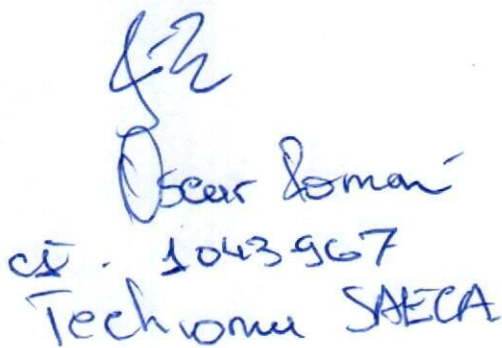 Oscar Román
CI. 1043967
Techroma SAECA